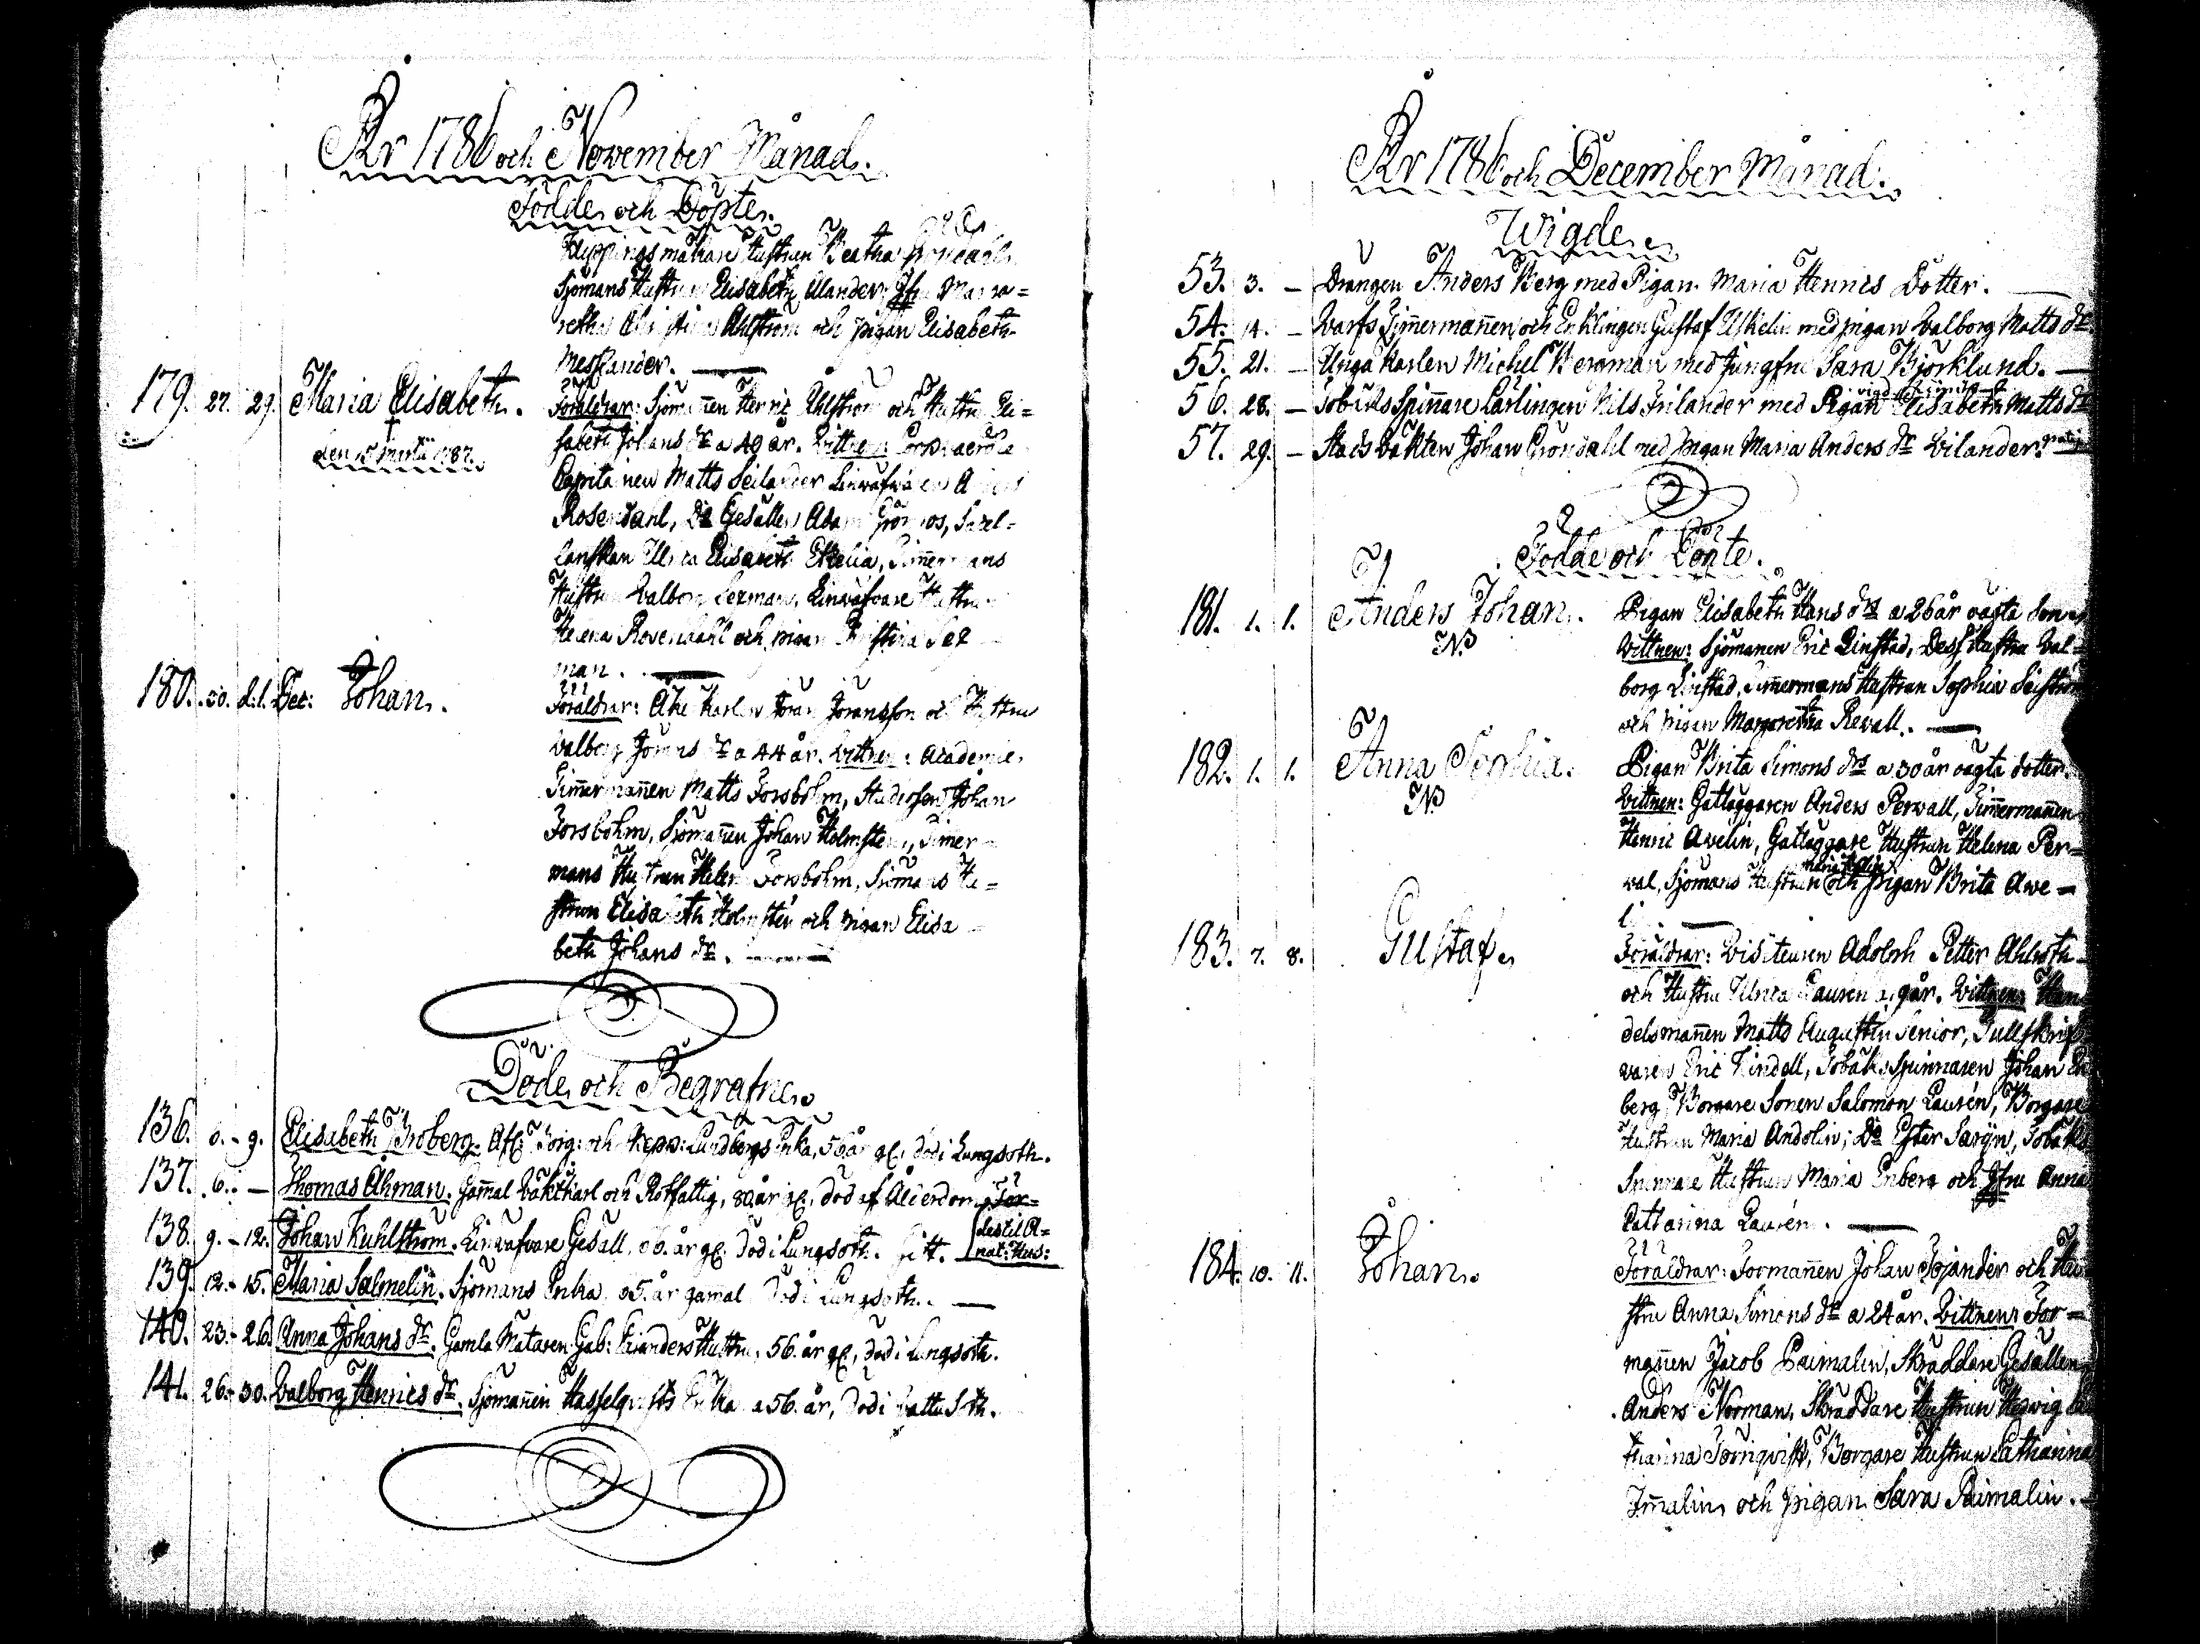 År 1786 och November Månad.
Födde och Döpte.
Hustrun Beatha Gröndahl
Sjömans Hustrun Elisabeth Ulander, Jfru Marga=
retha Christina Ahlström och pigan Elisabeth
Meslander.
179. 27. 29. Maria Elisabeth. Föräldrar: Sjömannen Henric Ahlström och Hustru Eli=
†
den 15 Martii 1787.
sabeth Johans dr a 40 år. Vittnen:
Capitainen Matts Seilander Linväfvaren
Rosendahl, Do Gesällen Adam Grönroos,
Elisabeth Ekelin, Timmermans
Hustrun Valborg Lexman, Linväfvare Hustrun
Helena Rosendahl och pigan Christina Sex
man.
180. 30. d. 1. Dec: Johan. Föräldrar: Åke Karlen Jöran Jöransson och Hustru
Valborg Jörans dr a 44 år. Vittnen: Academie
Timmermannen Matts Forsbohm, Studiosen Johan
Forsbohm, Sjömannen Johan Holmsten, Timer
mans Hustrun Helena Forsbohm, Sjömans Hu=
strun Elisabeth Holmsten och pigan Elisa
beth Johans dr.
Döde och Begrafne.
136. 6. - 9. Elisabeth Broberg. Afl. Borg: och Skepp: Lundbergs Enka, 56 år gl. död i Lungsoth.
137. 6. - Thomas Åhman. Gammal Vaktkarl och Rotfattig, 80 år gl. död af Ålderdom. För=
des til A=
nat: Hus:
138. 9. - 12. Johan Kuhlström. Linväfvare Gesäll, år gl. Död i Lungsoth.
139. 12. - 15. Maria Salmelin. Sjömans Enka år gamal Död i Lungsoth.
140. 23. - 26. Anna Johans dr. Gamla Mätaren Gab: Kianders Hustru, 56. år gl, död i Lungsoth.
141. 26. - 30. Valborg Henrics dr. Sjömannen Hasselqvists Enka a 56. år, Död i Vattusoth.
År 1786 och December Månad.
Wigde.
53. 3. - Drängen Anders Berg med Pigan Maria Henrics Dotter.
54. 14. - Varfs Timmermannen och Enklingen Gustaf Uhelin med pigan Valborg Matts dr.
55. 21. - Unga Karlen Michel Bergman med Jungfru Sara Björklund.
56. 28. - Tobaks Spinnare Lärlingen Nils Frilander med Pigan Elisabeth Matts dr
57. 29. - Stads Vakten Johan Gröndahl med pigan Maria Anders dr Vilander. gratis
Födde och Döpte.
181. 1. 1. Anders Johan. Pigan Elisabeth Hans drs a 26 år oägta Son.
NB
Vittnen: Sjömannen Eric Linstad, Dess Hustru Val=
borg Linstad, Timmermans Hustrun Sophia Seiström
och pigan Margaretha Revall.
182. 1. 1. Anna Sophia. Pigan Brita Simons drs a 30 år oägta dotter.
NB
Vittnen: Gatläggaren Anders Perwall, Timmermannen
Henric Avelin, Gatläggare Hustrun Helena Per=
val, Sjömans Hustrun och pigan Brita Awe=
183. 7. 8. Gustaf. Föräldrar: Visiteuren Adolph Petter Ahlroth
och Hustru Ulrica Lauren a år. Vittnen: Han
delsmannen Matts Augustin Senior, Tullskrif
varen Eric Kindell, Tobaks Spinnaren Johan En
berg, Borgare Sonen Salomon Laurén, Borgare
Hustrun Maria Andolin; Do Ester Sarin, Tobaks
Spinnare Hustrun Maria Enberg och Jfru Anna
Catharina Laurén.
184. 10. 11. Johan. Föräldrar: Formannen Johan Tojander och Hu
stru Anna Simons dr a 24 år. Vittnen: For=
mannen Jacob Paimalin, Skräddare Gesällen
Anders Norman, Skräddare Hustrun Hedvig Ca
tharina Törnqvist, Borgare Hustrun Catharina
Immalin och pigan Sara Paimalin.